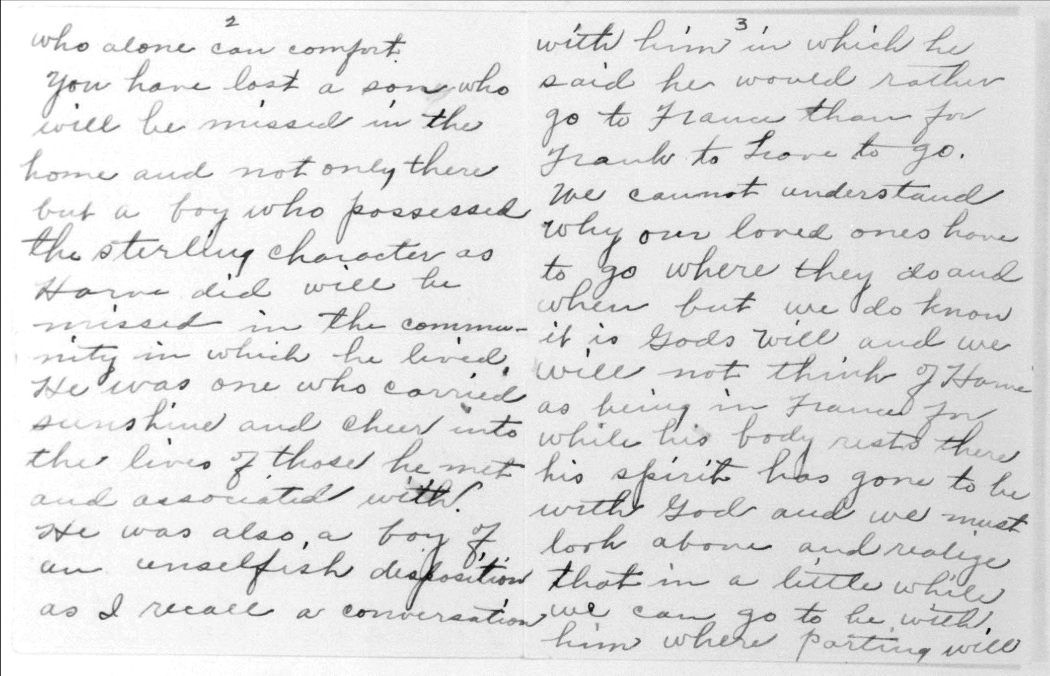 2
who alone can comfort.
You have lost a son who
will be missed in the
home and not only there
but a boy who possessed
the sterling character as
Harve did will be
missed in the commu-
nity in which he lived.
He was one who carried
sunshine and cheer into
the lives of those he met
and associated with.
He was also, a boy of
an unselfish disposition
as I recall a conversation
3
with him in which he
said he would rather
go to France than for
Frank to have to go.
We cannot understand
why our loved ones have
to go where they do and
when but we do know
it is Gods will and we
will not think of Harve
as being in France for
while his body rests there
his spirit has gone to be
with God and we must
look above and realize
that in a little while
we can go to be with
him where parting will